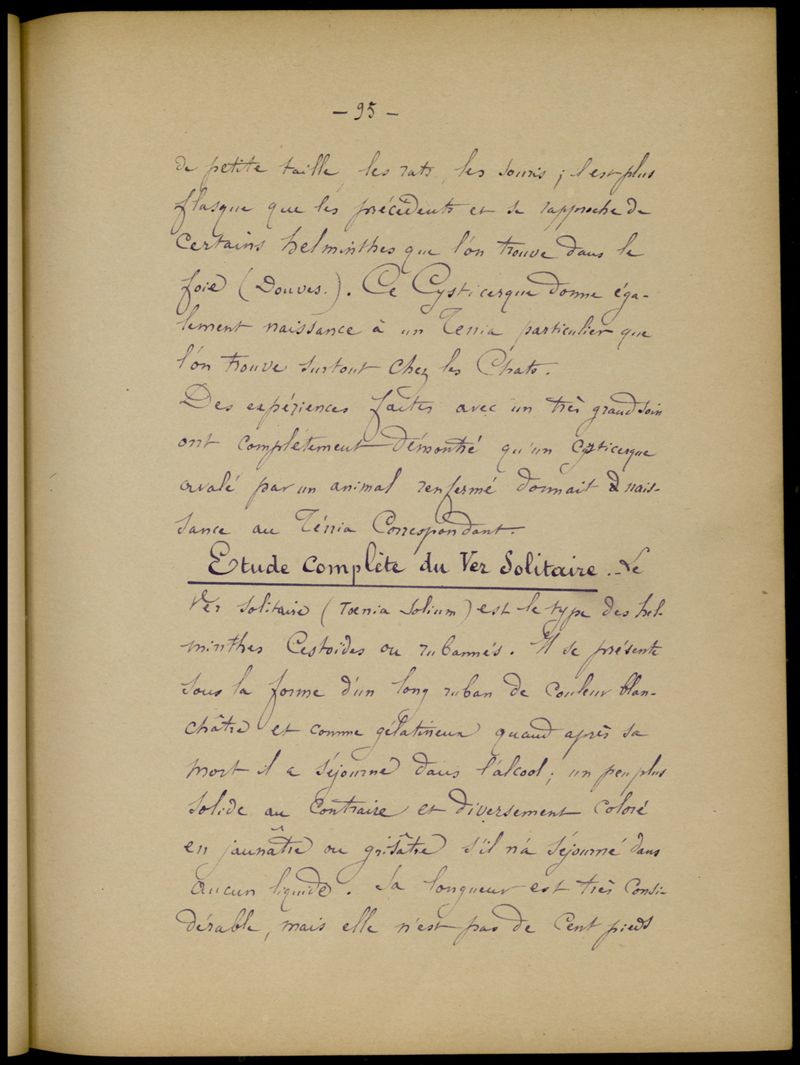 – 95 –
de petite taille, les rats, les souris ; il est plus
flasque que les précédents et se rapproche de
certains helminthes que l'on trouve dans le
foie (Douves.). Ce Cysticerque donne éga-
lement naissance à un Ténia particulier que
l'on trouve surtout chez les Chats.
Des expériences faites avec un très grand soin
ont complètement démontré qu'un cysticerque
avalé par un animal renfermé donnait nais-
sance au Ténia Correspondant.
Etude Complète du Ver Solitaire. – Le
Ver solitaire (Tœnia Solium) est le type des hel-
minthes Cestoïdes ou rubannés. Il se présente
sous la forme d'un long ruban de couleur blan-
châtre et comme gélatineux quand après sa
mort il a séjourné dans l'alcool; un peu plus
solide au contraire et diversement coloré
en jaunâtre ou grisâtre s'il n'a séjourné dans
aucun liquide. Sa longueur est très consi-
dérable, mais elle n'est pas de Cent pieds